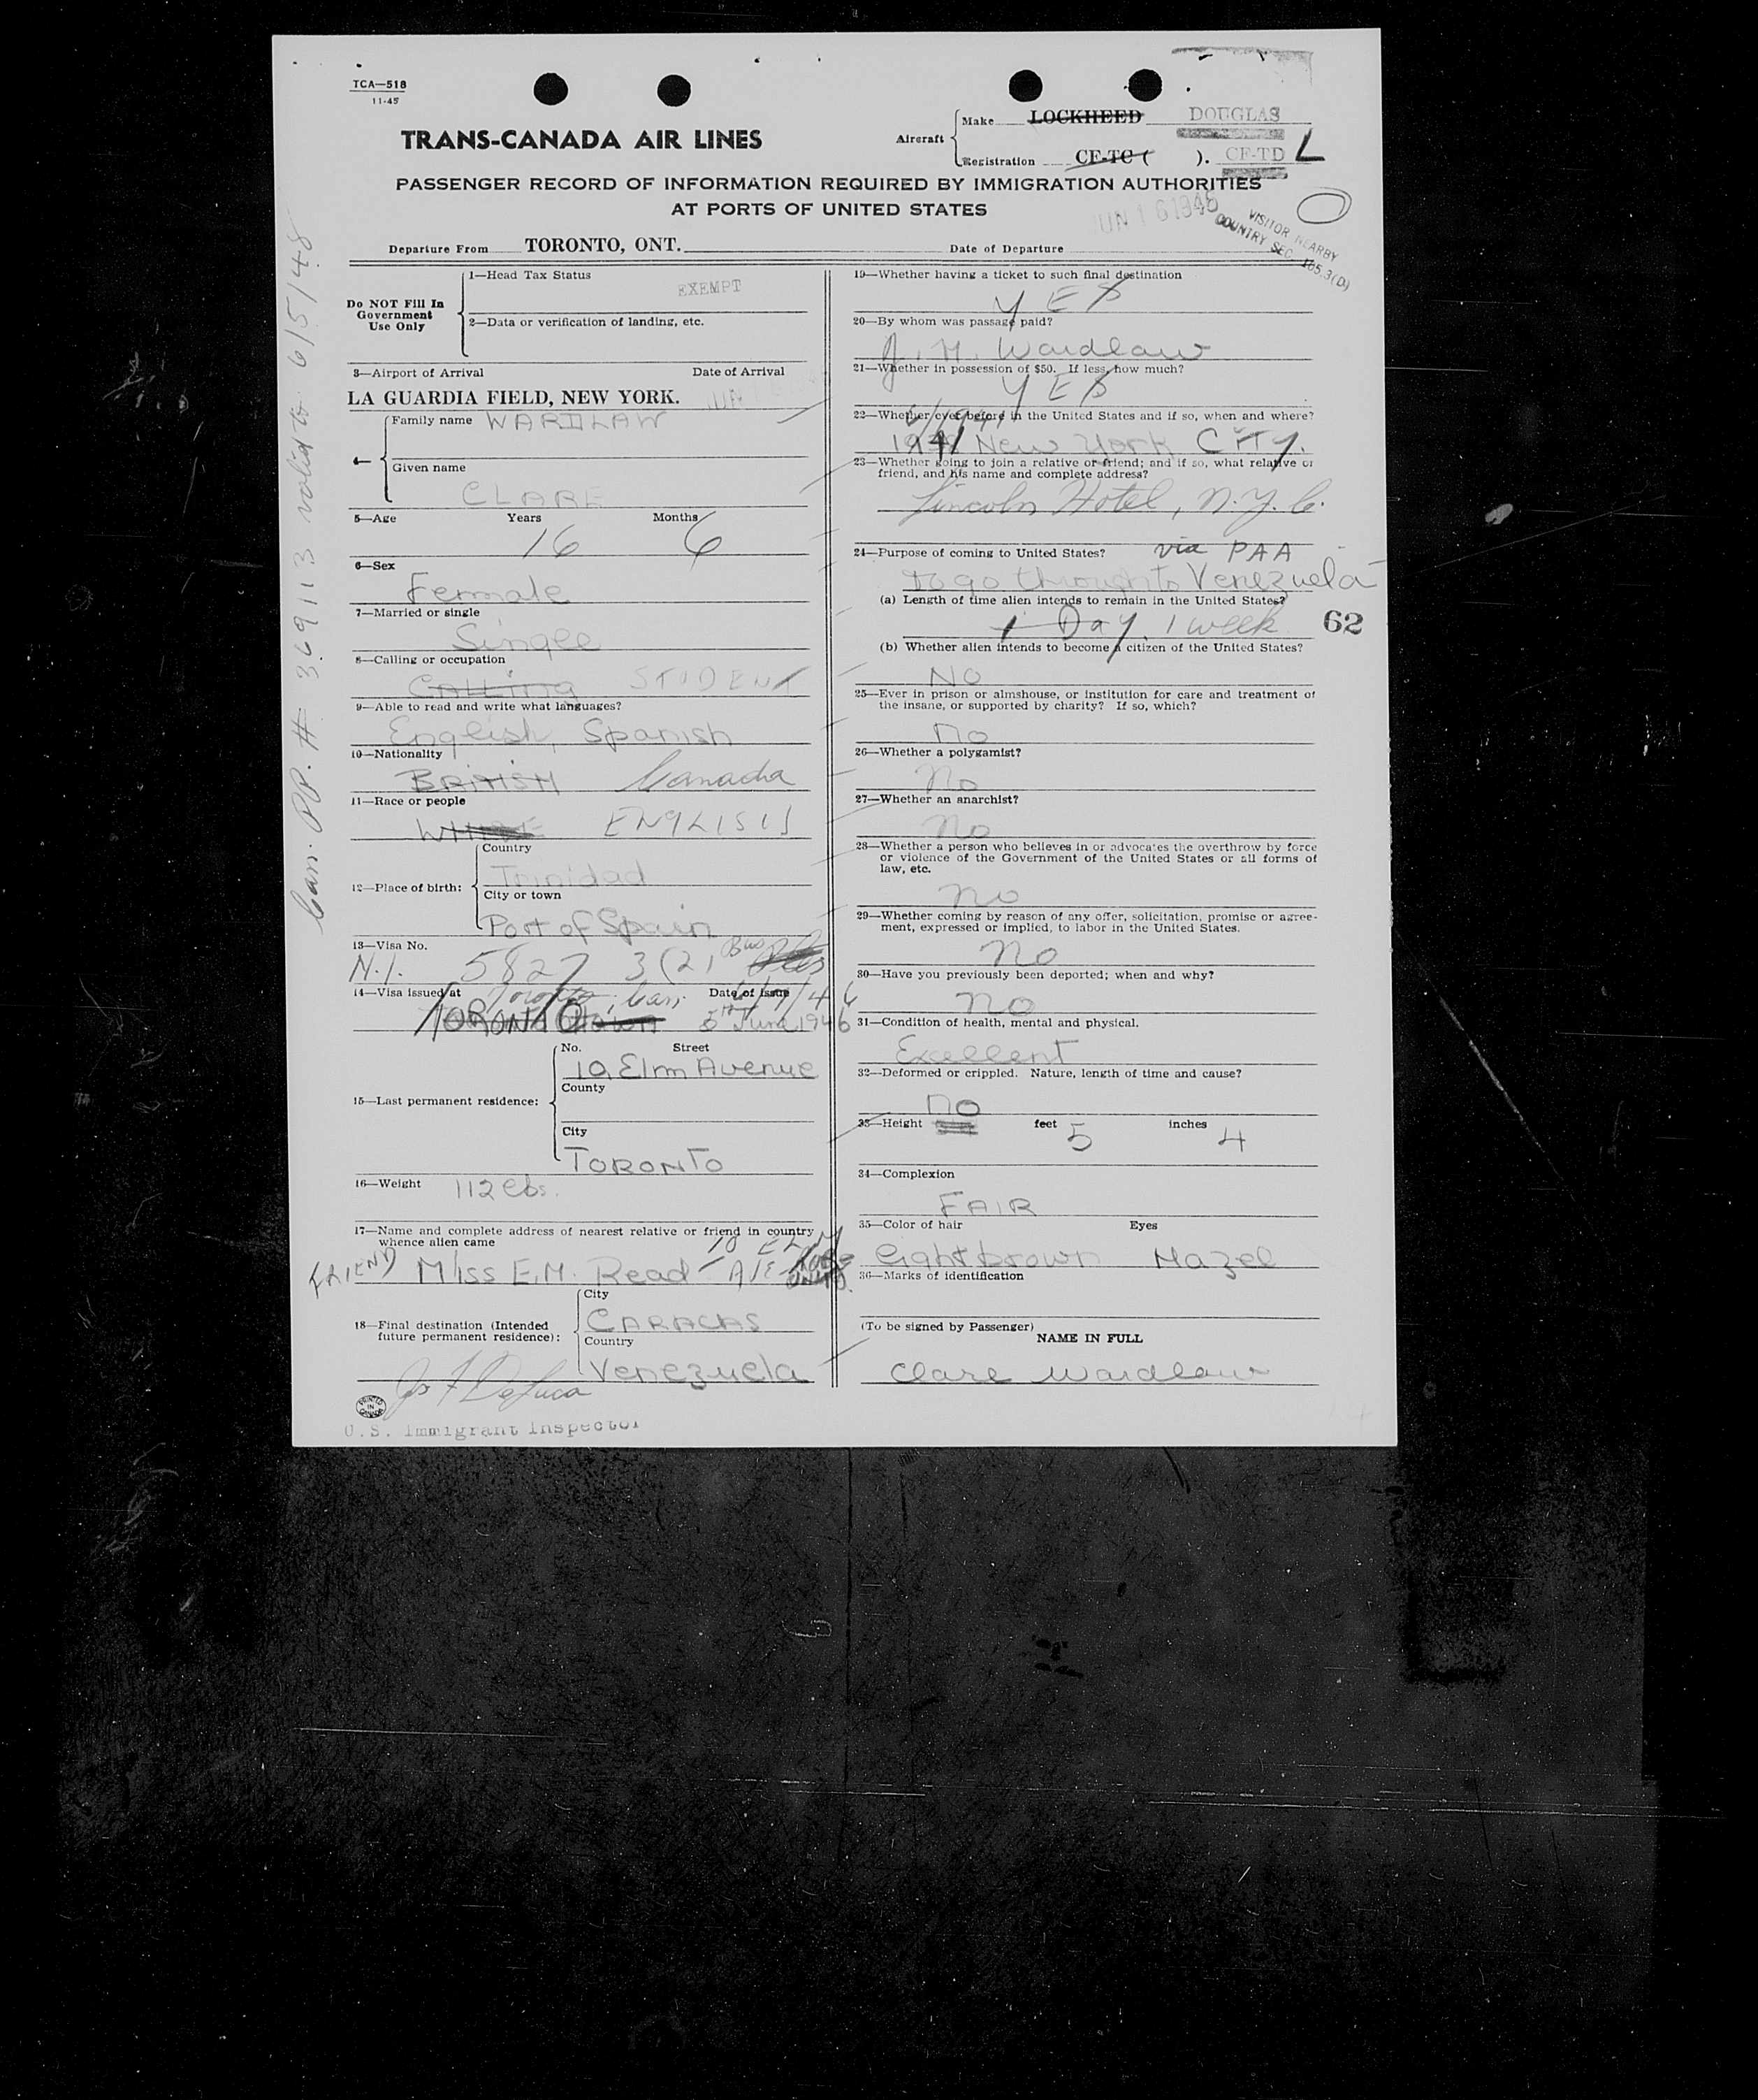 TCA—518
11-45
TRANS-CANADA AIR LINES
Aircraft
Make LOCKHEED DOUGLAS
Registration CF-TC ( ). CF-TD L
PASSENGER RECORD OF INFORMATION REQUIRED BY IMMIGRATION AUTHORITIES
AT PORTS OF UNITED STATES
JUN 16 1946
VISITOR NEARBY
COUNTRY SEC. 165.3(D)
Departure From TORONTO, ONT. Date of Departure
Can. P.P. # 369113 valid to 6/5/48
Do NOT Fill In
Government
Use Only
1—Head Tax Status
EXEMPT
2—Data or verification of landing, etc.
3—Airport of Arrival Date of Arrival
LA GUARDIA FIELD, NEW YORK. JUN
4—
Family name WARDLAW
Given name
CLARE
5—Age Years Months
16 6
6—Sex
Female
7—Married or single
Single
8—Calling or occupation
Calling STUDENT
9—Able to read and write what languages?
English, Spanish
10—Nationality
BRITISH Canada
11—Race or people
WHITE ENGLISH
12—Place of birth:
Country
Trinidad
City or town
Port of Spain
13—Visa No.
N.I. 5827 3(2) Bus
14—Visa issued at Toronto, Can. Date of issue
TORONTO 5th June 1946
15—Last permanent residence:
No. Street
10 Elm Avenue
County
City
TORONTO
16—Weight 112 lbs.
17—Name and complete address of nearest relative or friend in country
whence alien came
10 ELM
FRIEND Miss E.M. Read - AVE
18—Final destination (Intended
future permanent residence):
City
CARACAS
Country
Venezuela
Js F DeLuca
PRINTED
IN
CANADA
U.S. Immigrant Inspector
19—Whether having a ticket to such final destination
YES
20—By whom was passage paid?
J. H. Wardlaw
21—Whether in possession of $50. If less, how much?
YES
22—Whether ever before in the United States and if so, when and where?
1941 New York City.
23—Whether going to join a relative or friend; and if so, what relative or
friend, and his name and complete address?
Lincoln Hotel, N.Y.C.
24—Purpose of coming to United States? via PAA
To go through to Venezuela
(a) Length of time alien intends to remain in the United States?
1 Day. 1 week
62
(b) Whether alien intends to become a citizen of the United States?
No
25—Ever in prison or almshouse, or institution for care and treatment of
the insane, or supported by charity? If so, which?
no
26—Whether a polygamist?
no
27—Whether an anarchist?
no
28—Whether a person who believes in or advocates the overthrow by force
or violence of the Government of the United States or all forms of
law, etc.
no
29—Whether coming by reason of any offer, solicitation, promise or agree-
ment, expressed or implied, to labor in the United States.
no
30—Have you previously been deported; when and why?
no
31—Condition of health, mental and physical.
Excellent
32—Deformed or crippled. Nature, length of time and cause?
no
33—Height feet 5 inches 4
34—Complexion
FAIR
35—Color of hair Eyes
Light brown Hazel
36—Marks of identification
(To be signed by Passenger)
NAME IN FULL
Clare Wardlaw